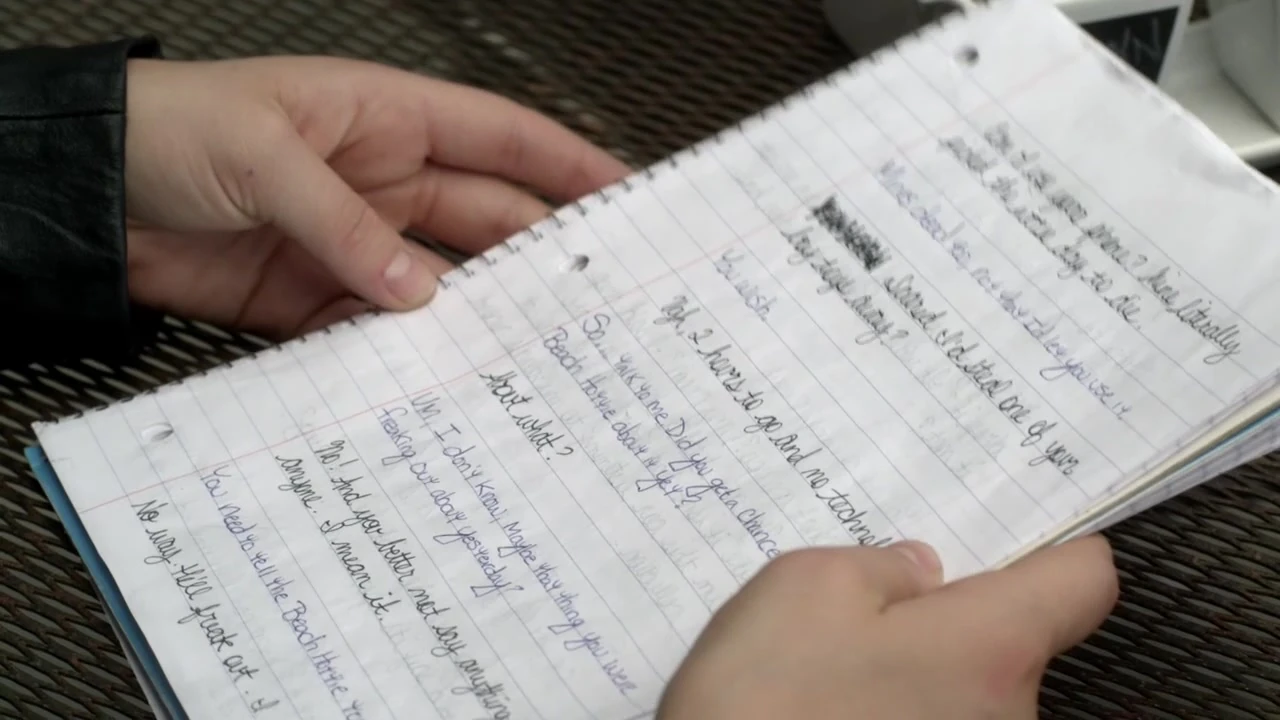 use your phone? Mine literally
picked the worst day to die.
Most dead too, not that I'd let you use it.
Scared I'd steal one of your
boy-toys away?
You wish.
Ugh, 2 hours to go and no technol
So... talk to me. Did you get a chance
Beach Hottie about it yet?
About what?
Um, I don't know, maybe that thing you were
freaking out about yesterday?
No! And you better not say anything
anyone. I mean it.
You need to tell the Beach Hottie. Yo
No way. He'll freak out. I